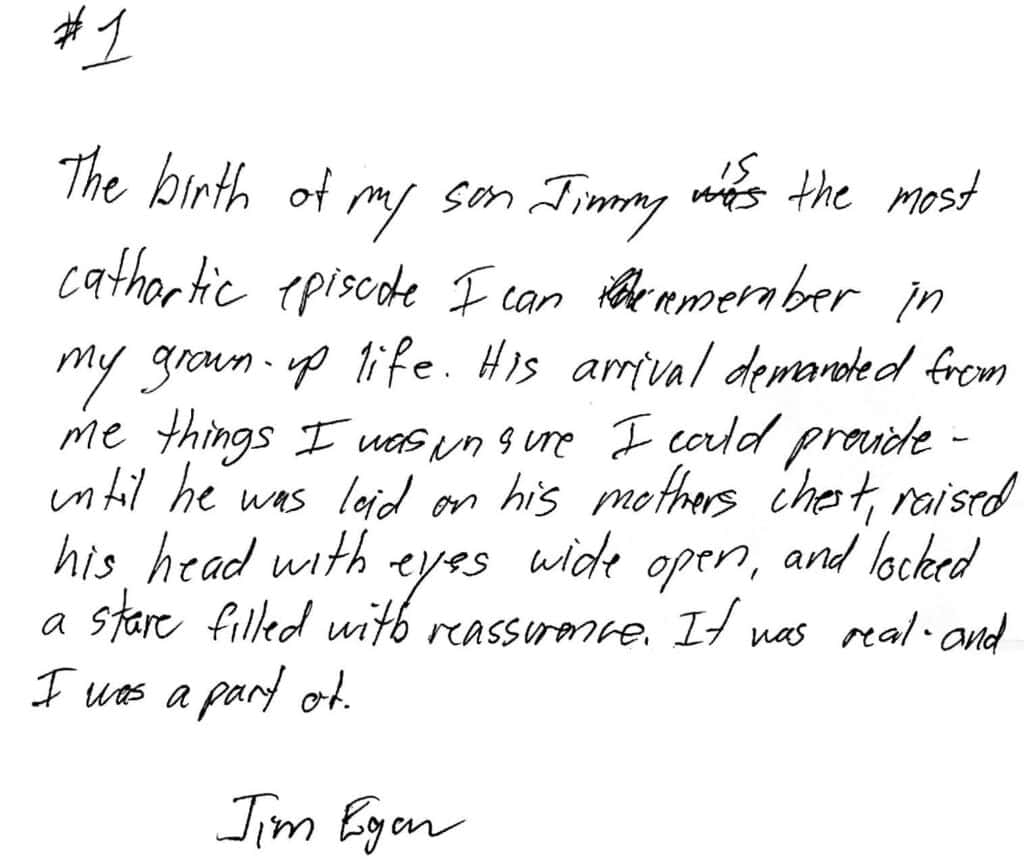 #1
The birth of my son Jimmy was is the most
cathartic episode I can remember in
my grown-up life. His arrival demanded from
me things I was unsure I could provide -
until he was laid on his mothers chest, raised
his head with eyes wide open, and locked
a stare filled with reassurance. It was real - and
I was a part of.
Jim Egan